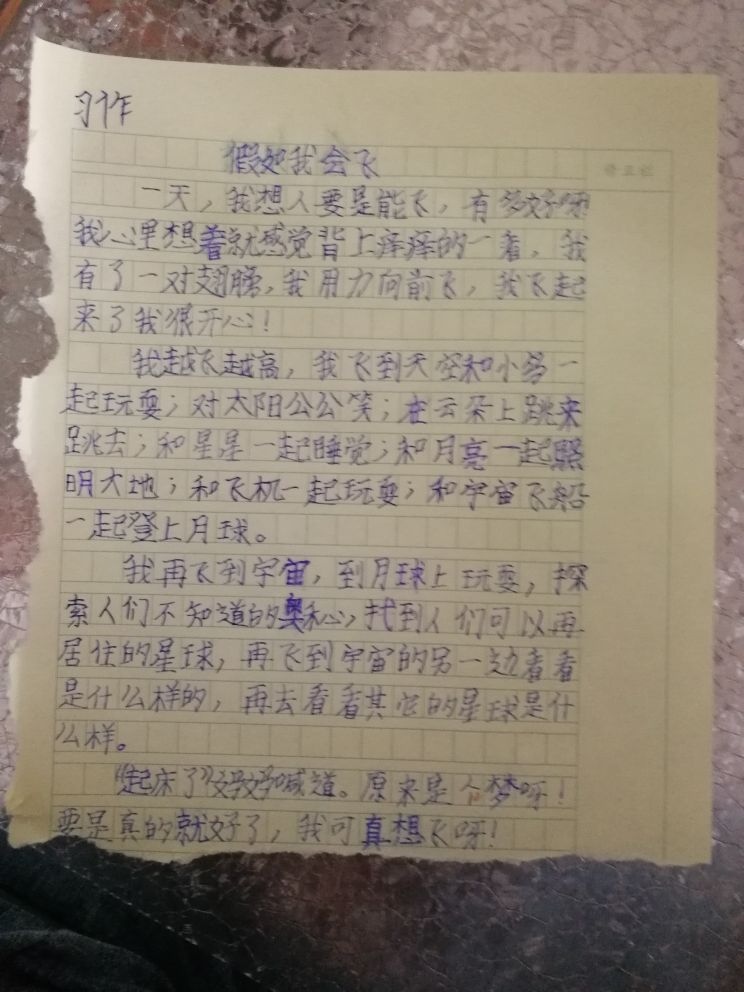 习作
假如我会飞
一天，我想人要是能飞，有多好呀
我心里想着就感觉背上痒痒的一看，我
有了一对翅膀，我用力向前飞，我飞起
来了我很开心！
我越飞越高，我飞到天空和小鸟一
起玩耍；对太阳公公笑；在云朵上跳来
跳去；和星星一起睡觉；和月亮一起照
明大地；和飞机一起玩耍；和宇宙飞船
一起登上月球。
我再飞到宇宙，到月球上玩耍，探
索人们不知道的奥秘，找到人们可以再
居住的星球，再飞到宇宙的另一边看看
是什么样的，再去看看其它的星球是什
么样。
“起床了”妈妈喊道。原来是个梦呀！
要是真的就好了，我可真想飞呀！